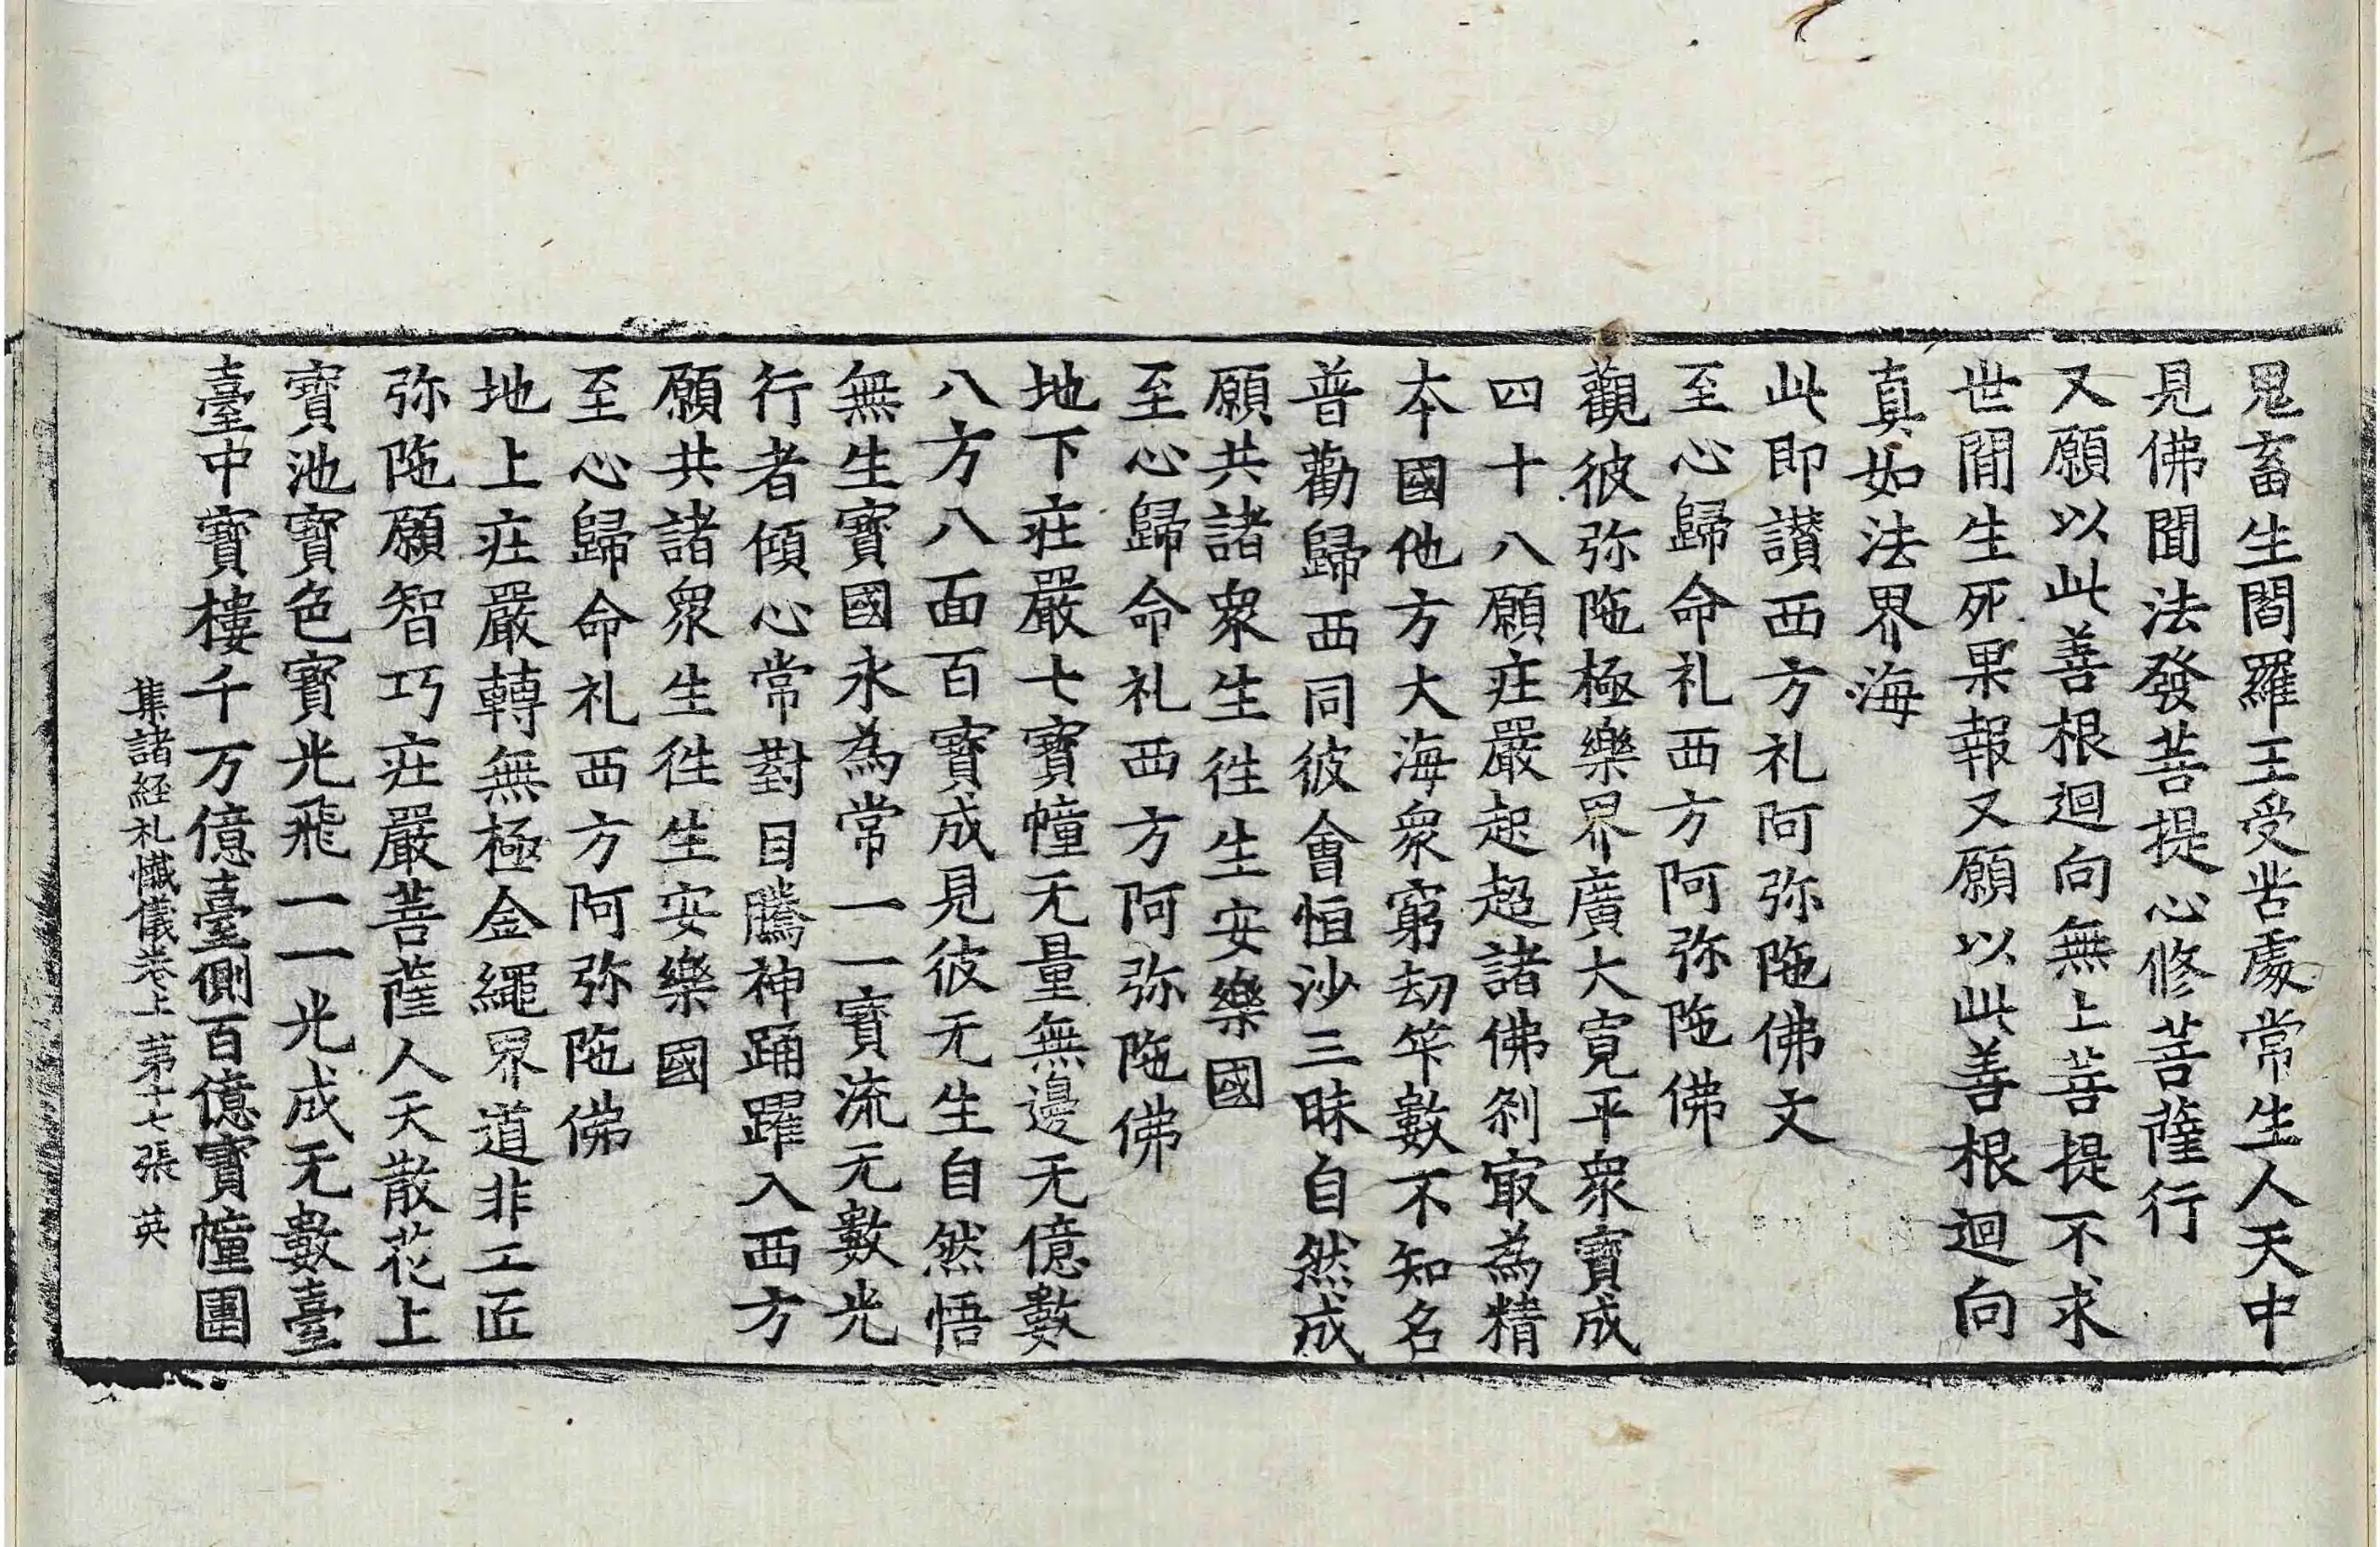 鬼畜生閻羅王受苦處常生人天中
見佛聞法發菩提心修菩薩行
又願以此善根迴向無上菩提不求
世間生死果報又願以此善根迴向
真如法界海
此即讃西方礼阿弥陁佛文
至心歸命礼西方阿弥陁佛
觀彼弥陁極樂界廣大寬平衆寶成
四十八願莊嚴起超諸佛刹冣為精
本國他方大海衆窮劫筭數不知名
普勸歸西同彼會恒沙三昧自然成
願共諸衆生往生安樂國
至心歸命礼西方阿弥陁佛
地下莊嚴七寶幢无量無邊无億數
八方八面百寶成見彼无生自然悟
無生寶國永為常一一寶流无數光
行者傾心常對目騰神踊躍入西方
願共諸衆生往生安樂國
至心歸命礼西方阿弥陁佛
地上莊嚴轉無極金繩界道非工匠
弥陁願智巧莊嚴菩薩人天散花上
寶池寶色寶光飛一一光成无數臺
臺中寶樓千万億臺側百億寶幢圍
集諸経礼懺儀卷上 苐十七張 英